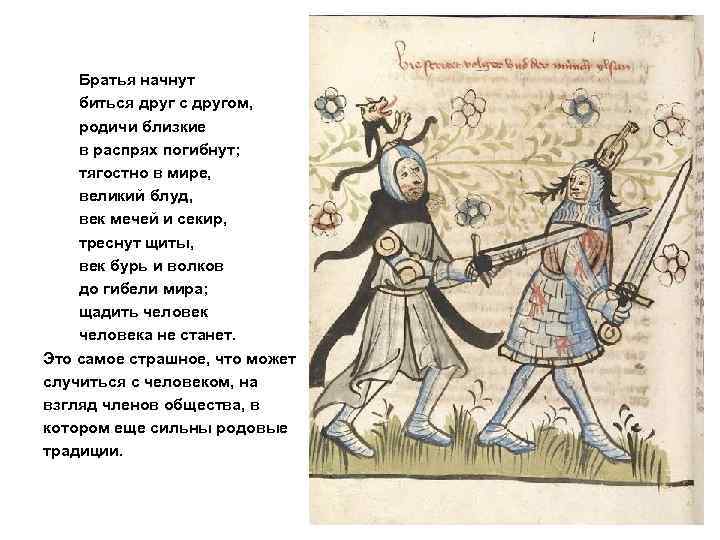 Братья начнут
биться друг с другом,
родичи близкие
в распрях погибнут;
тягостно в мире,
великий блуд,
век мечей и секир,
треснут щиты,
век бурь и волков
до гибели мира;
щадить человек
человека не станет.
Это самое страшное, что может
случиться с человеком, на
взгляд членов общества, в
котором еще сильны родовые
традиции.